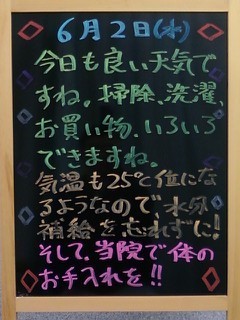 6月2日(水)
今日も良い天気で
すね。掃除、洗濯、
お買い物、いろいろ
できますね。
気温も25℃位にな
るようなので、水分
補給を忘れずに!
そして、当院で体の
お手入れを!!